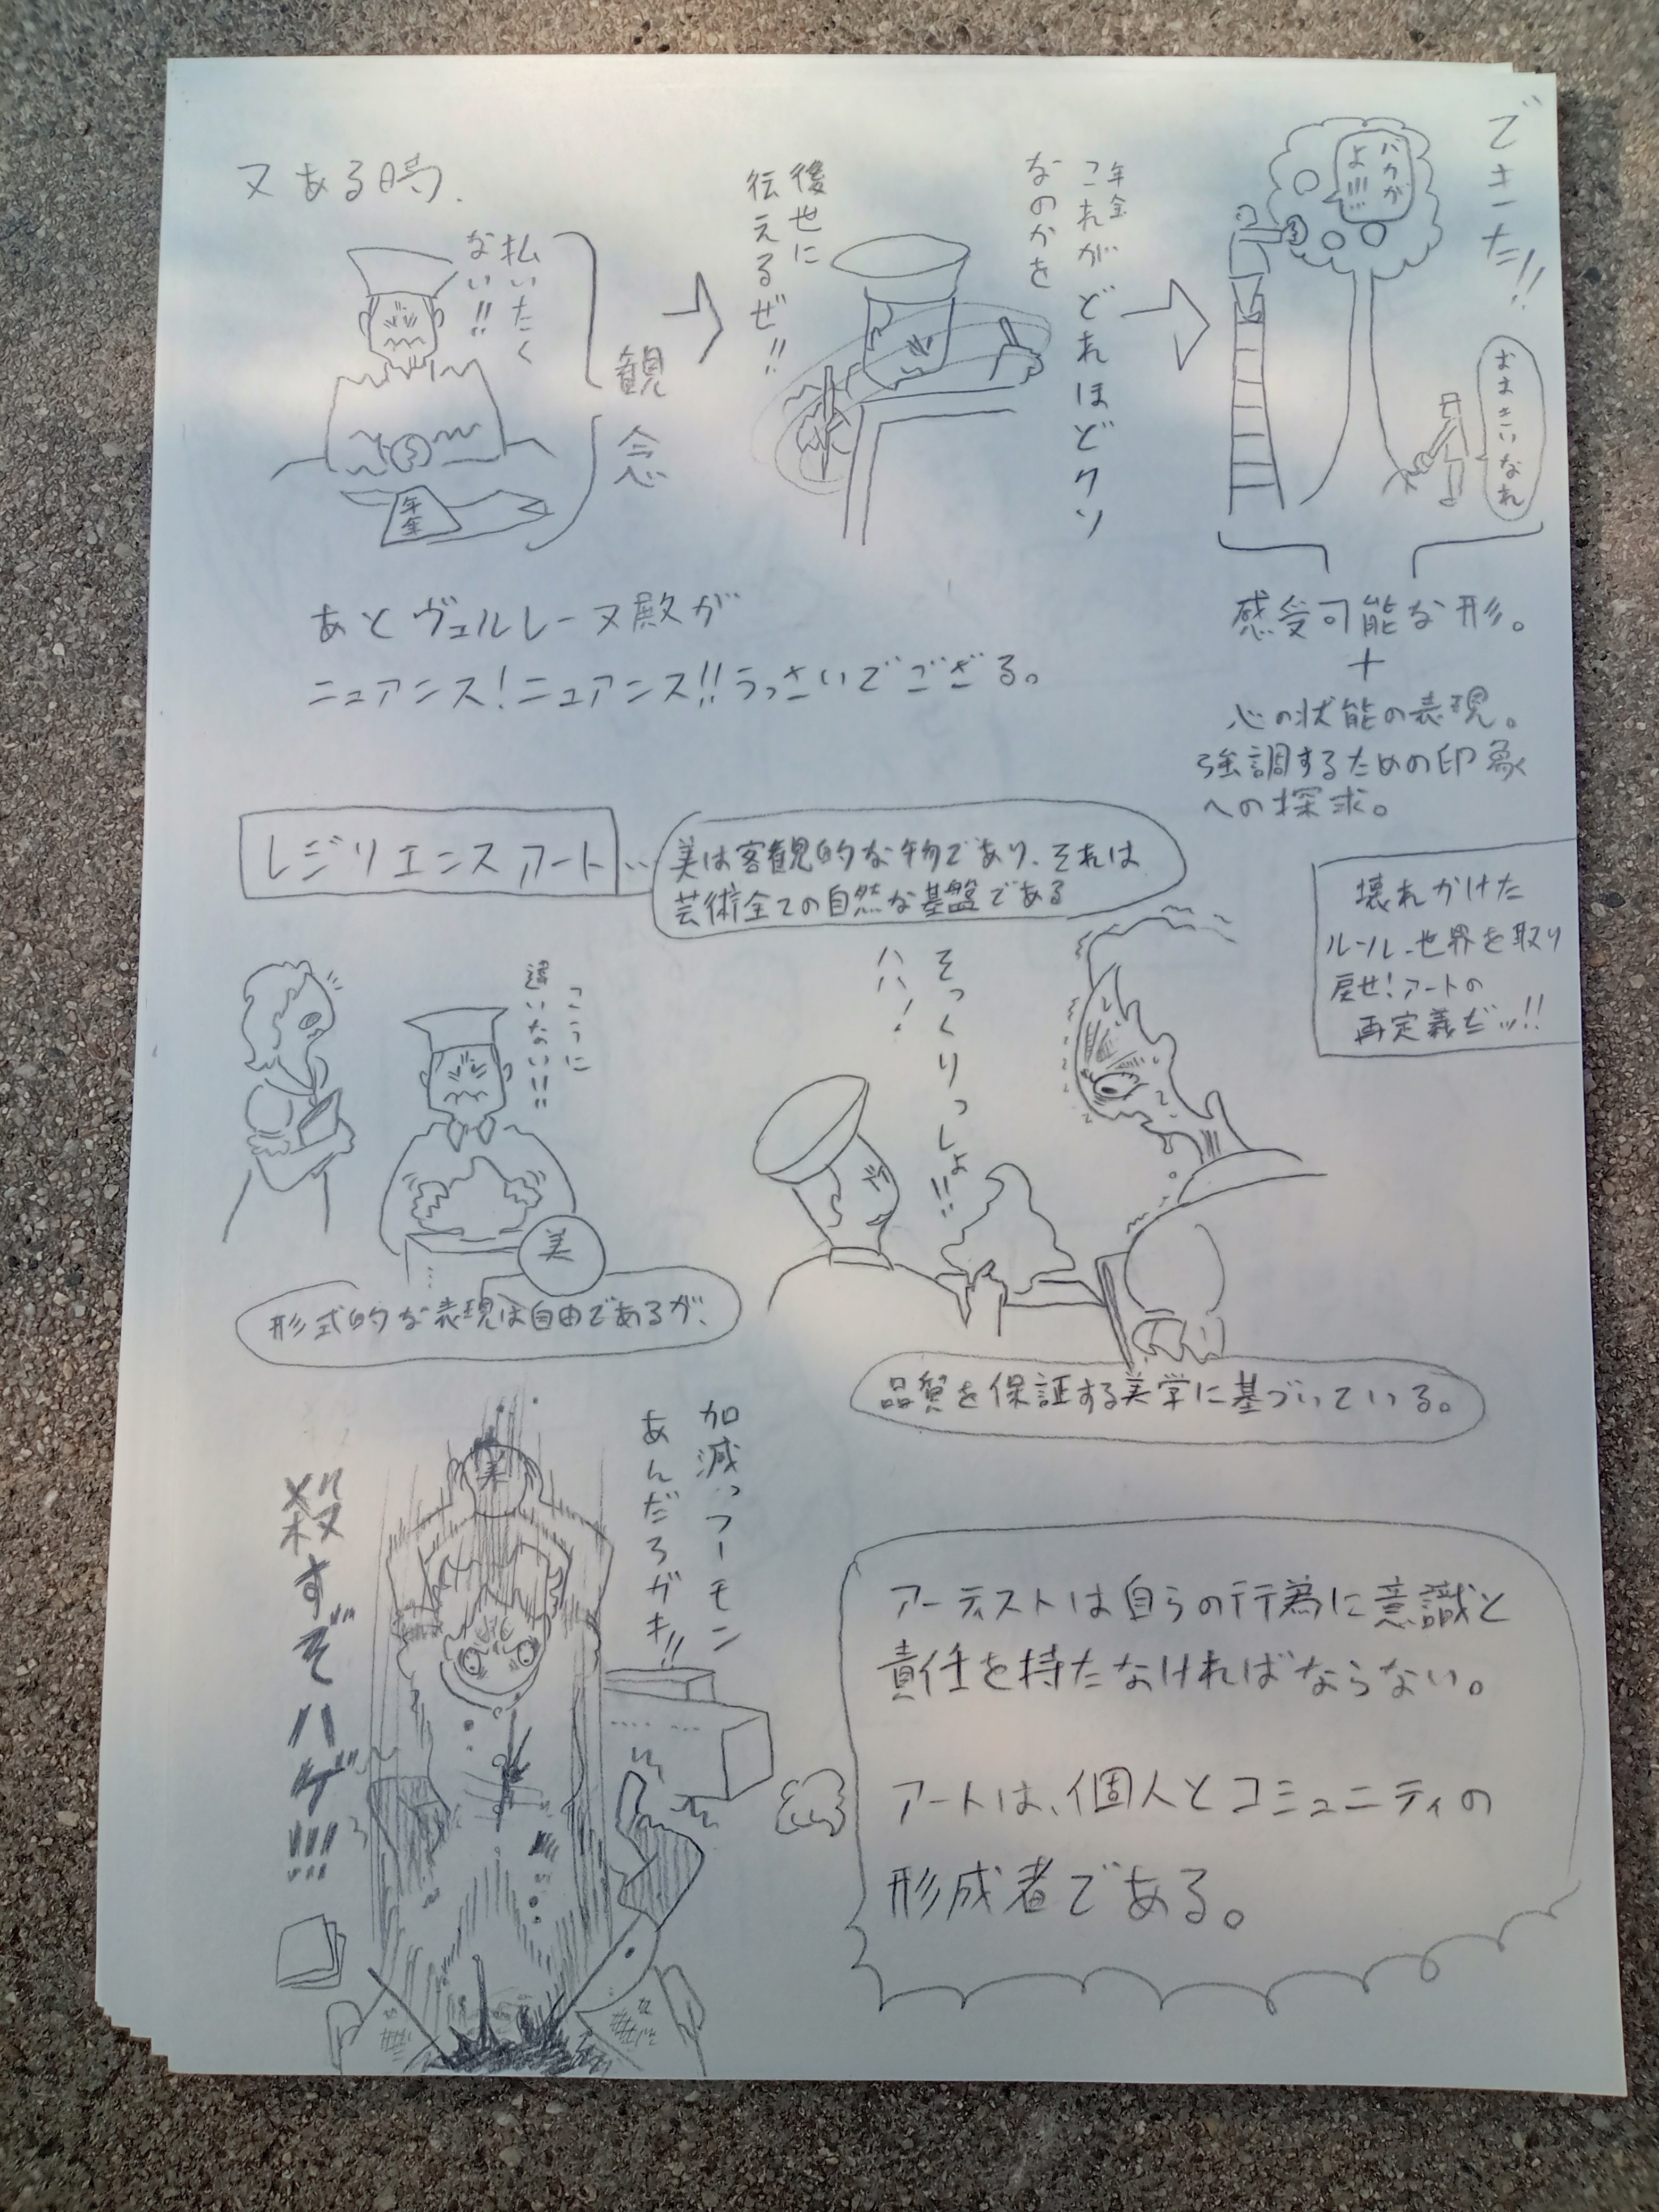 又ある時.
払いたく
ない!!
年金
観念
後世に
伝えるぜ!!
年金
これがどれほどクソ
なのかを
できた!!
バカが
よ!!!
おおきいなれ
感受可能な形。
+
心の状態の表現。
強調するための印象
への探求。
あとヴェルレーヌ殿が
ニュアンス!ニュアンス!!うっさいでござる。
レジリエンスアート
美は客観的な物であり、それは
芸術全ての自然な基盤である
壊れかけた
ルール、世界を取り
戻せ!アートの
再定義だッ!!
こうに
違いない!!
美
形式的な表現は自由であるが、
そっくりっしょ!!
ハハ!
品質を保証する美学に基づいている。
加減っつーモン
あんだろガキ!!
美
殺すぞハゲ!!!
アーティストは自らの行為に意識と
責任を持たなければならない。
アートは、個人とコミュニティの
形成者である。